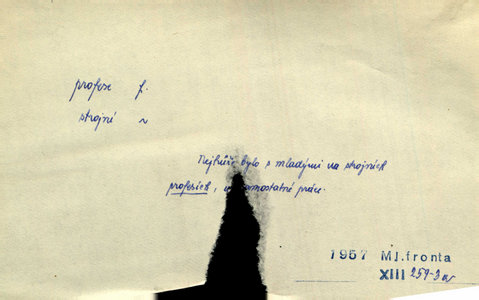 profese f.
strojné ~
Nejhůře bylo s mladými na strojních
profesích, v samostatné práce.
1957 Ml.fronta
XIII 259-3